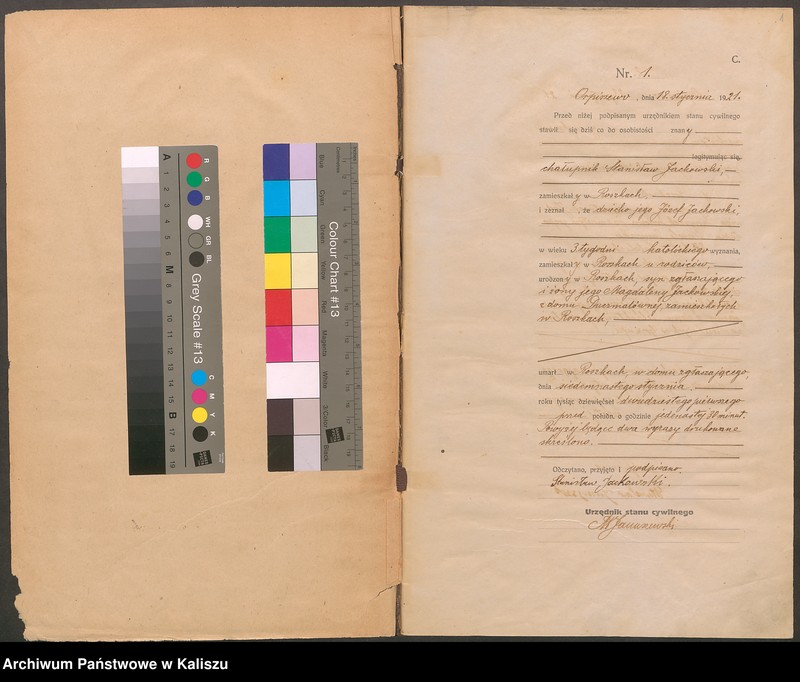 A
1
2
3
4
5
6
M
8
9
10
11
12
13
14
15
B
17
18
19
R
G
B
WH
GR
BL
Grey Scale #13
C
M
Y
K
Blue
Cyan
Green
Yellow
Red
Magenta
White
3/Color
Black
Centimetres
Colour Chart #13
C.
Nr. 1.
Orpiszew, dnia 18. stycznia 1921.
Przed niżej podpisanym urzędnikiem stanu cywilnego
stawił się dziś co do osobistości znany
legitymując się,
chałupnik Stanisław Jackowski,
zamieszkały w Roszkach
i zeznał, że dziecko jego Józef Jackowski,
w wieku 3 tygodni katolickiego wyznania,
zamieszkały w Roszkach u rodziców,
urodzony w Roszkach, syn zgłaszającego
i żony jego Magdaleny Jackowskiej,
z domu zamieszkałych
w Roszkach,
umarł w Roszkach, w domu zgłaszającego,
dnia siedemnastego stycznia
roku tysiąc dziewięćset dwudziestego pierwszego
przed połudn. o godzinie jedenastej 30 minut.
Powyżej będące dwa wyrazy drukowane
skreślono.
Odczytano, przyjęto i podpisano.
Stanisław Jackowski.
Urzędnik stanu cywilnego
Januszewski
Archiwum Państwowe w Kaliszu